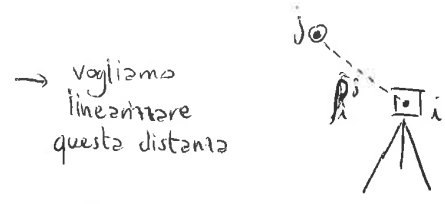 → vogliamo
linearizzare
questa distanza
j
ρ_i^j
i